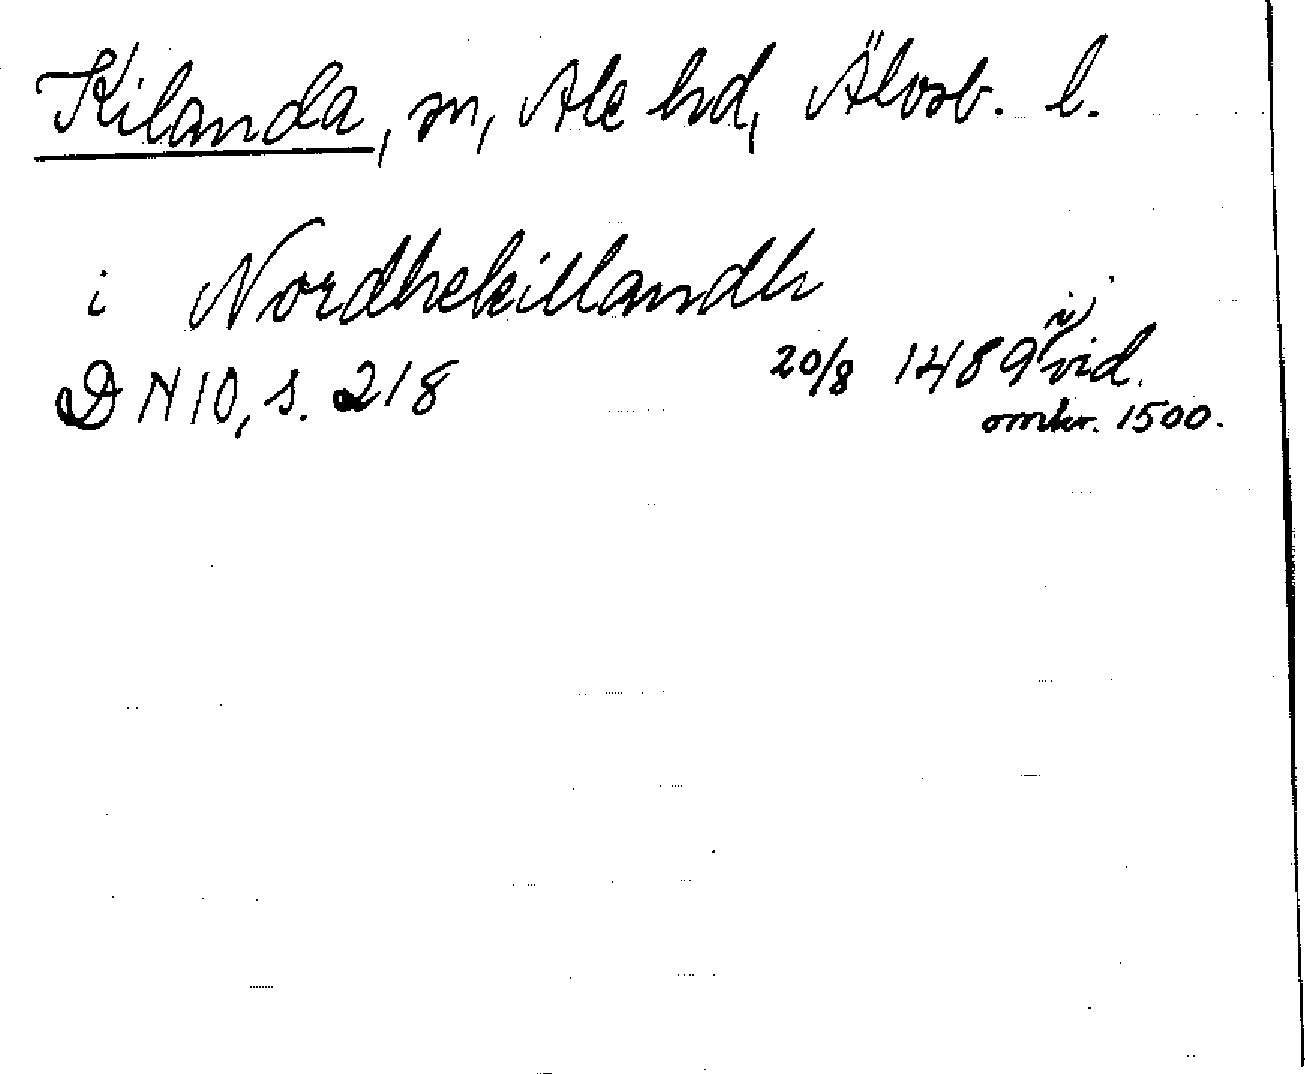 Kilanda, sn, Ale hd, Älvsb. l.
i Nordhekillandh
DN 10, s. 218 20/8 1489 i vid.
omkr. 1500.